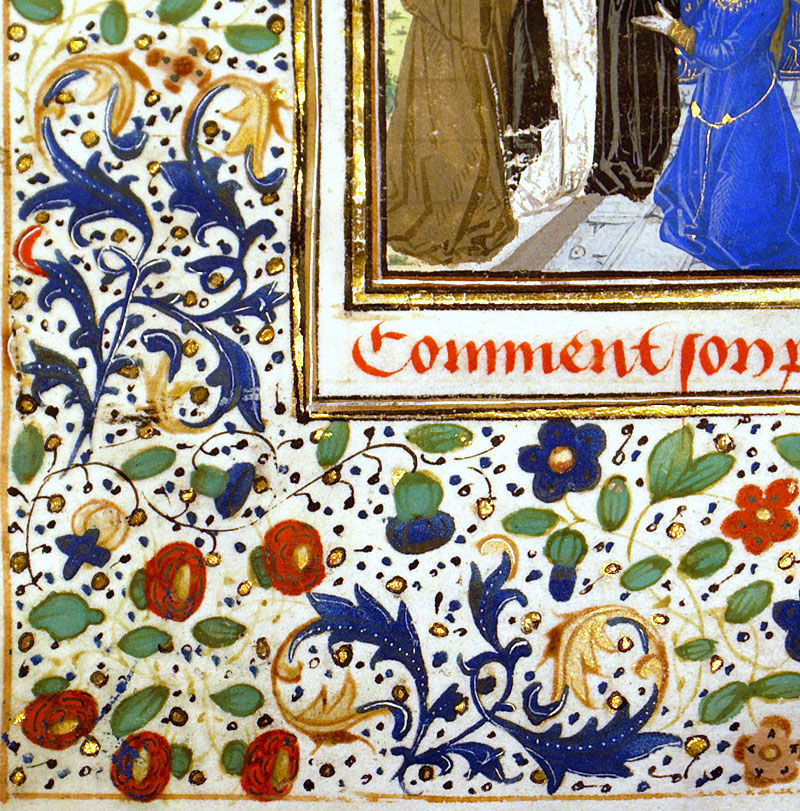 Comment son